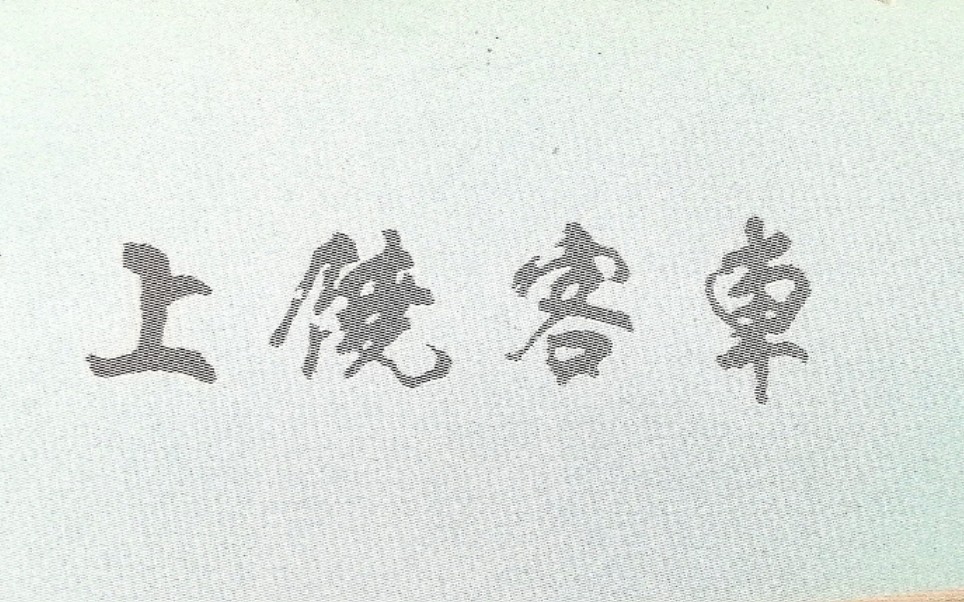 上饒客車